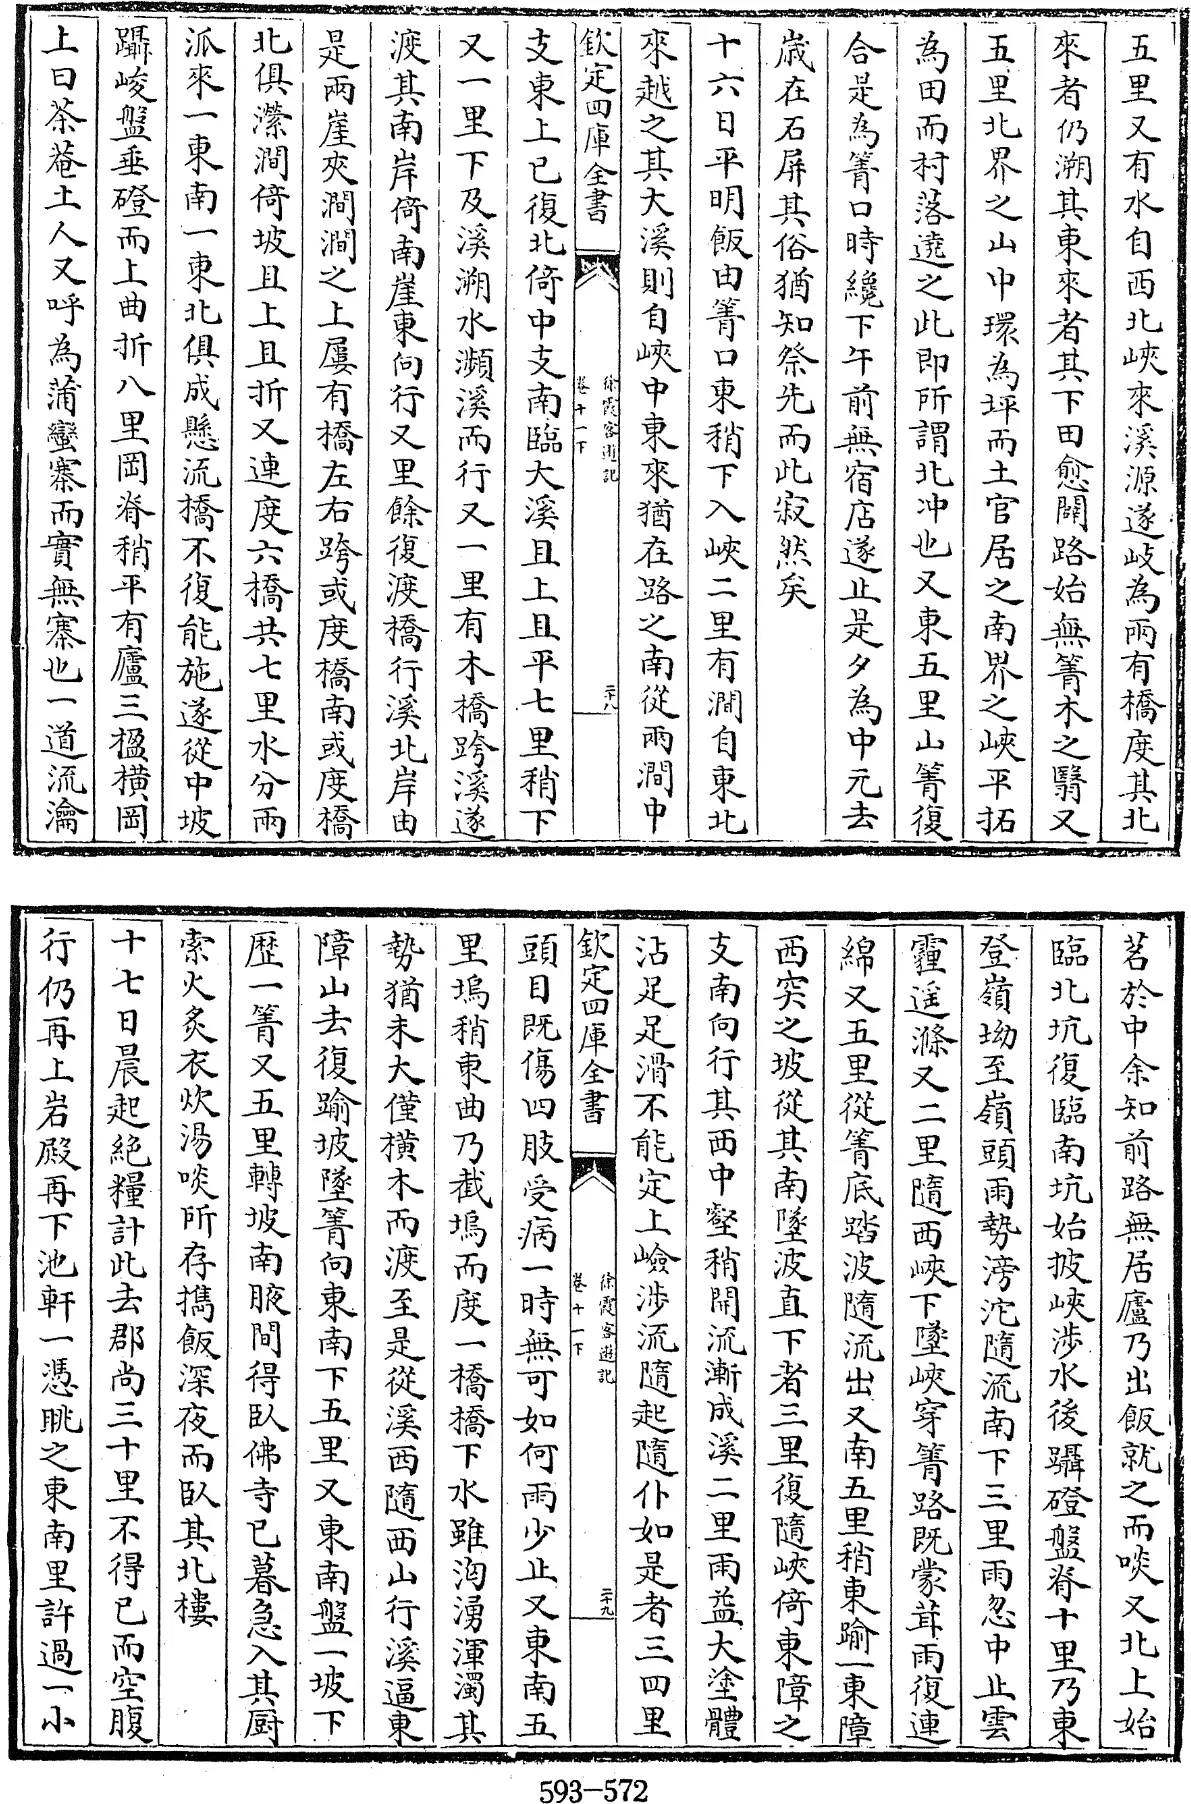 五里又有水自西北峽來溪源遂岐為兩有橋度其北
來者仍溯其東來者其下田愈闢路始無箐木之翳又
五里北界之山中環為坪而土官居之南界之峽平拓
為田而村落遶之此即所謂北冲也又東五里山箐復
合是為箐口時纔下午前無宿店遂止是夕為中元去
歲在石屏其俗猶知祭先而此寂然矣
十六日平明飯由箐口東稍下入峽二里有澗自東北
來越之其大溪則自峽中東來猶在路之南從兩澗中
欽定四庫全書
徐霞客遊記
卷十一下
二十八
支東上已復北倚中支南臨大溪且上且平七里稍下
又一里下及溪溯水瀕溪而行又一里有木橋跨溪遂
渡其南岸倚南崖東向行又里餘復渡橋行溪北岸由
是兩崖夾澗澗之上屢有橋左右跨或度橋南或度橋
北俱瀠澗倚坡且上且折又連度六橋共七里水分兩
派來一東南一東北俱成懸流橋不復能施遂從中坡
躡峻盤垂磴而上曲折八里岡脊稍平有廬三楹横岡
上曰茶菴土人又呼為蒲蠻寨而實無寨也一道流瀹
茗於中余知前路無居廬乃出飯就之而啖又北上始
臨北坑復臨南坑始披峽涉水後躡磴盤脊十里乃東
登嶺坳至嶺頭雨勢滂沱隨流南下三里雨忽中止雲
霾遥滌又二里隨西峽下墜峽穿箐路既蒙茸雨復連
綿又五里從箐底踏波隨流出又南五里稍東踰一東障
西突之坡從其南墜波直下者三里復隨峽倚東障之
支南向行其西中壑稍開流漸成溪二里雨益大塗體
沾足足滑不能定上嶮涉流隨起隨仆如是者三四里
欽定四庫全書
徐霞客遊記
卷十一下
二十九
頭目既傷四肢受病一時無可如何雨少止又東南五
里塢稍東曲乃截塢而度一橋橋下水雖洶湧渾濁其
勢猶未大僅横木而渡至是從溪西隨西山行溪逼東
障山去復踰坡墜箐向東南下五里又東南盤一坡下
歷一箐又五里轉坡南腋間得臥佛寺已暮急入其厨
索火炙衣炊湯啖所存擕飯深夜而臥其北樓
十七日晨起絶糧計此去郡尚三十里不得已而空腹
行仍再上岩殿再下池軒一憑眺之東南里許過一小
593-572